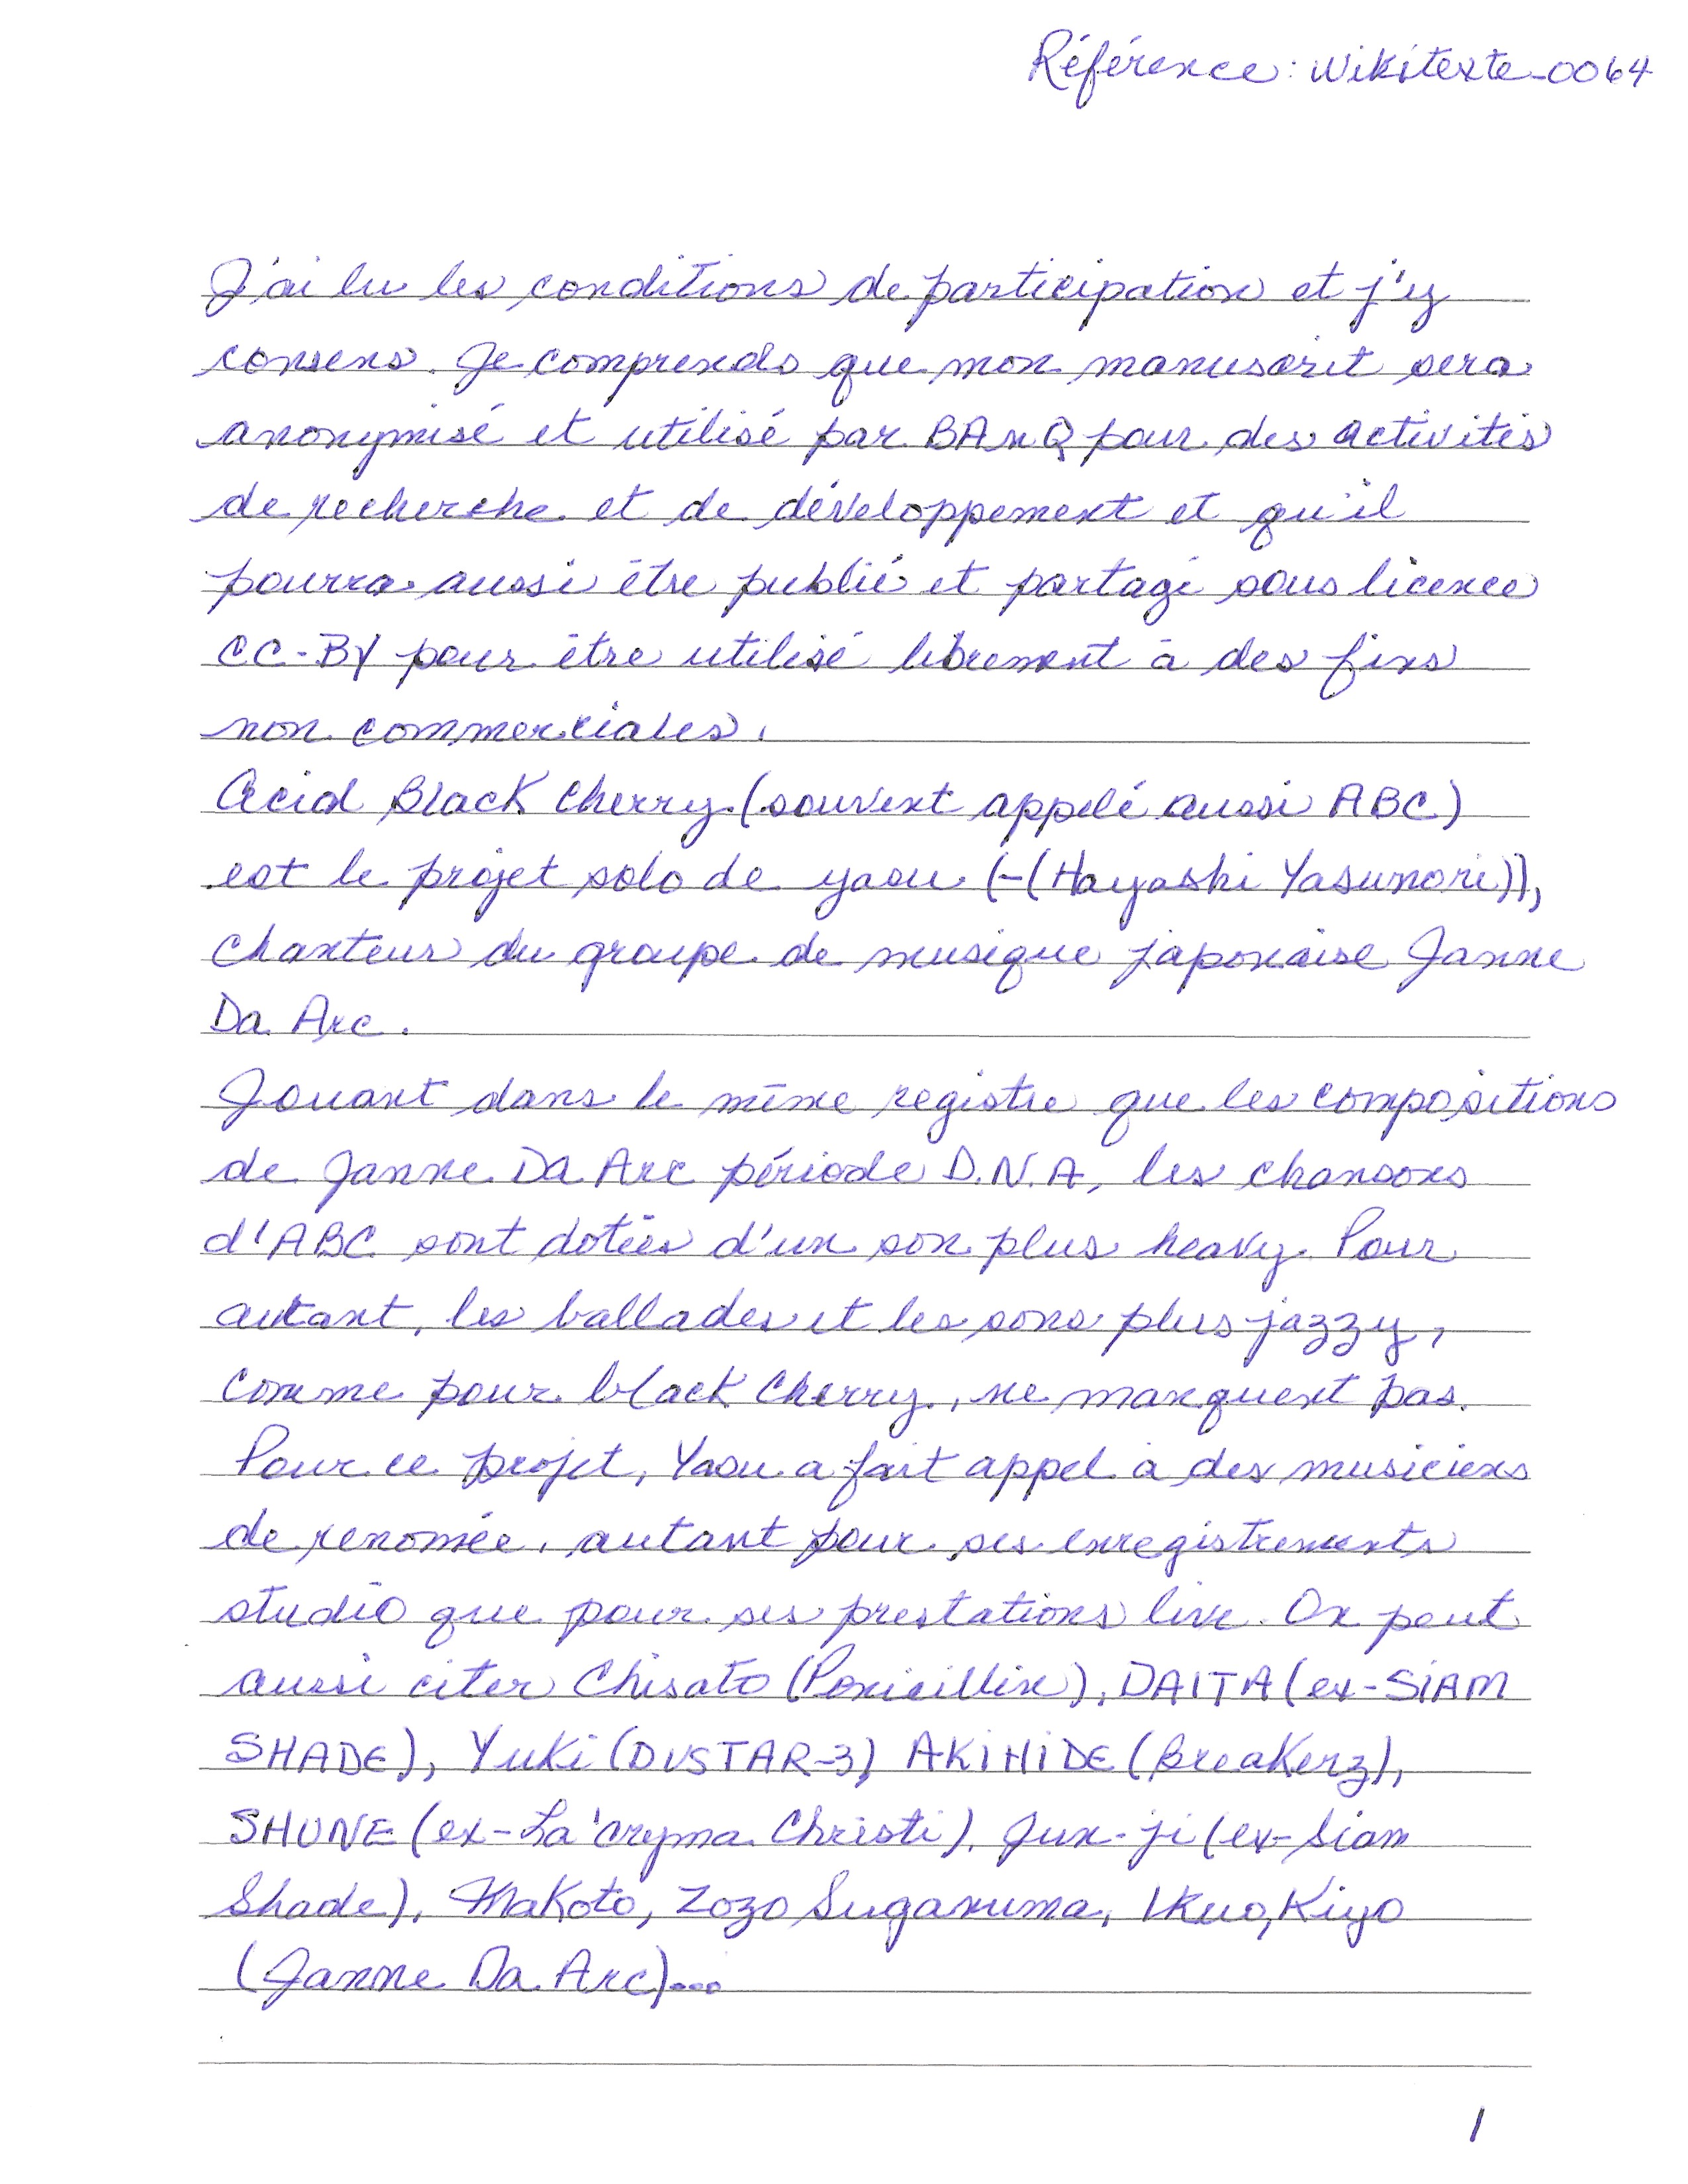 Référence: Wikitexte-0064
J'ai lu les conditions de participation et j'y
consens. Je comprends que mon manuscrit sera
anonymisé et utilisé par BAnQ pour des activités
de recherche et de développement et qu'il
pourra aussi être publié et partagé sous licence
CC-BY pour être utilisé librement à des fins
non commerciales.
Acid Black Cherry (souvent appelé aussi ABC)
est le projet solo de yasu (-(Hayashi Yasunori)),
chanteur du groupe de musique japonaise Janne
Da Arc.
Jouant dans le même registre que les compositions
de Janne Da Arc période D.N.A, les chansons
d'ABC sont dotées d'un son plus heavy. Pour
autant, les ballades et les sons plus jazzy,
comme pour black Cherry, ne manquent pas.
Pour ce projet, Yasu a fait appel à des musiciens
de renomée, autant pour ses enregistrements
studio que pour ses prestations live. On peut
aussi citer Chisato (Penicillin), DAITA (ex-SIAM
SHADE), Yuki (DUSTAR-3), AKIHIDE (Breakerz),
SHUNE (ex-La'cryma Christi), Jun-ji (ex-Siam
Shade), Makoto, Zozo Suganuma, Ikuo, Kiyo
(Janne Da Arc)...
1